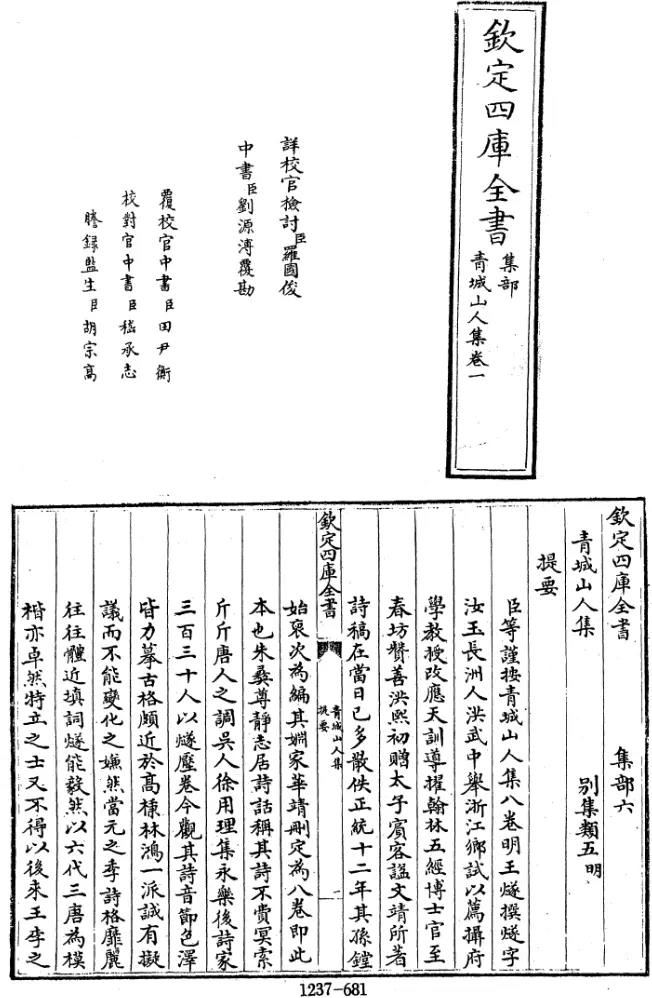 欽定四庫全書
集部
青城山人集卷一
詳校官檢討臣羅國俊
中書臣劉源溥覆勘
覆校官中書臣田尹衡
校對官中書臣嵇承志
謄録監生臣胡宗高
欽定四庫全書 集部六
青城山人集 別集類五明
提要
臣等謹按青城山人集八卷明王燧撰燧字
汝玉長洲人洪武中舉浙江鄉試以薦攝府
學教授改應天訓導擢翰林五經博士官至
春坊贊善洪熙初贈太子賓客諡文靖所著
詩稿在當日已多散佚正統十二年其孫鏜
欽定四庫全書
青城山人集
提要
一
始裒次為編其婣家華靖刪定為八卷即此
本也朱彝尊靜志居詩話稱其詩不費冥索
斤斤唐人之調吳人徐用理集永樂後詩家
三百三十人以燧壓卷今觀其詩音節色澤
皆力摹古格頗近於高棅林鴻一派誠有擬
議而不能變化之嫌然當元之季詩格靡麗
往往體近填詞燧能毅然以六代三唐為模
楷亦卓然特立之士又不得以後來王李之
1237-681